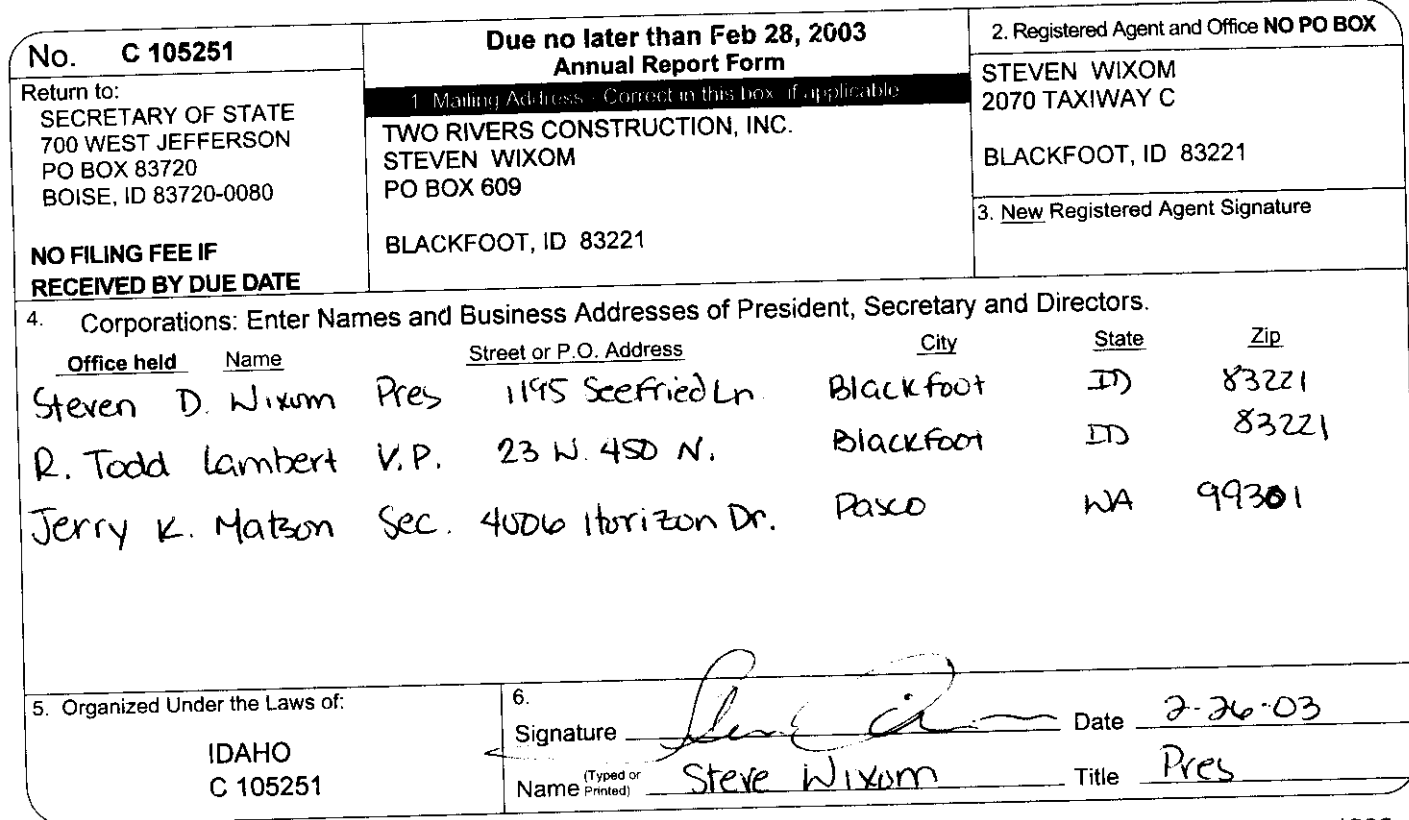 No. C 105251
Return to:
SECRETARY OF STATE
700 WEST JEFFERSON
PO BOX 83720
BOISE, ID 83720-0080
NO FILING FEE IF
RECEIVED BY DUE DATE
Due no later than Feb 28, 2003
Annual Report Form
1. Mailing Address - Correct in this box if applicable
TWO RIVERS CONSTRUCTION, INC.
STEVEN WIXOM
PO BOX 609
BLACKFOOT, ID 83221
2. Registered Agent and Office NO PO BOX
STEVEN WIXOM
2070 TAXIWAY C
BLACKFOOT, ID 83221
3. New Registered Agent Signature
4. Corporations: Enter Names and Business Addresses of President, Secretary and Directors.
Office held Name Street or P.O. Address City State Zip
Steven D. Wixom Pres 1195 Seefried Ln Blackfoot ID 83221
R. Todd Lambert V.P. 23 W. 450 N. Blackfoot ID 83221
Jerry K. Matson Sec. 4006 Horizon Dr. Pasco WA 99301
5. Organized Under the Laws of:
IDAHO
C 105251
6.
Signature Date 2-26-03
Name (Typed or Printed) Steve Wixom Title Pres